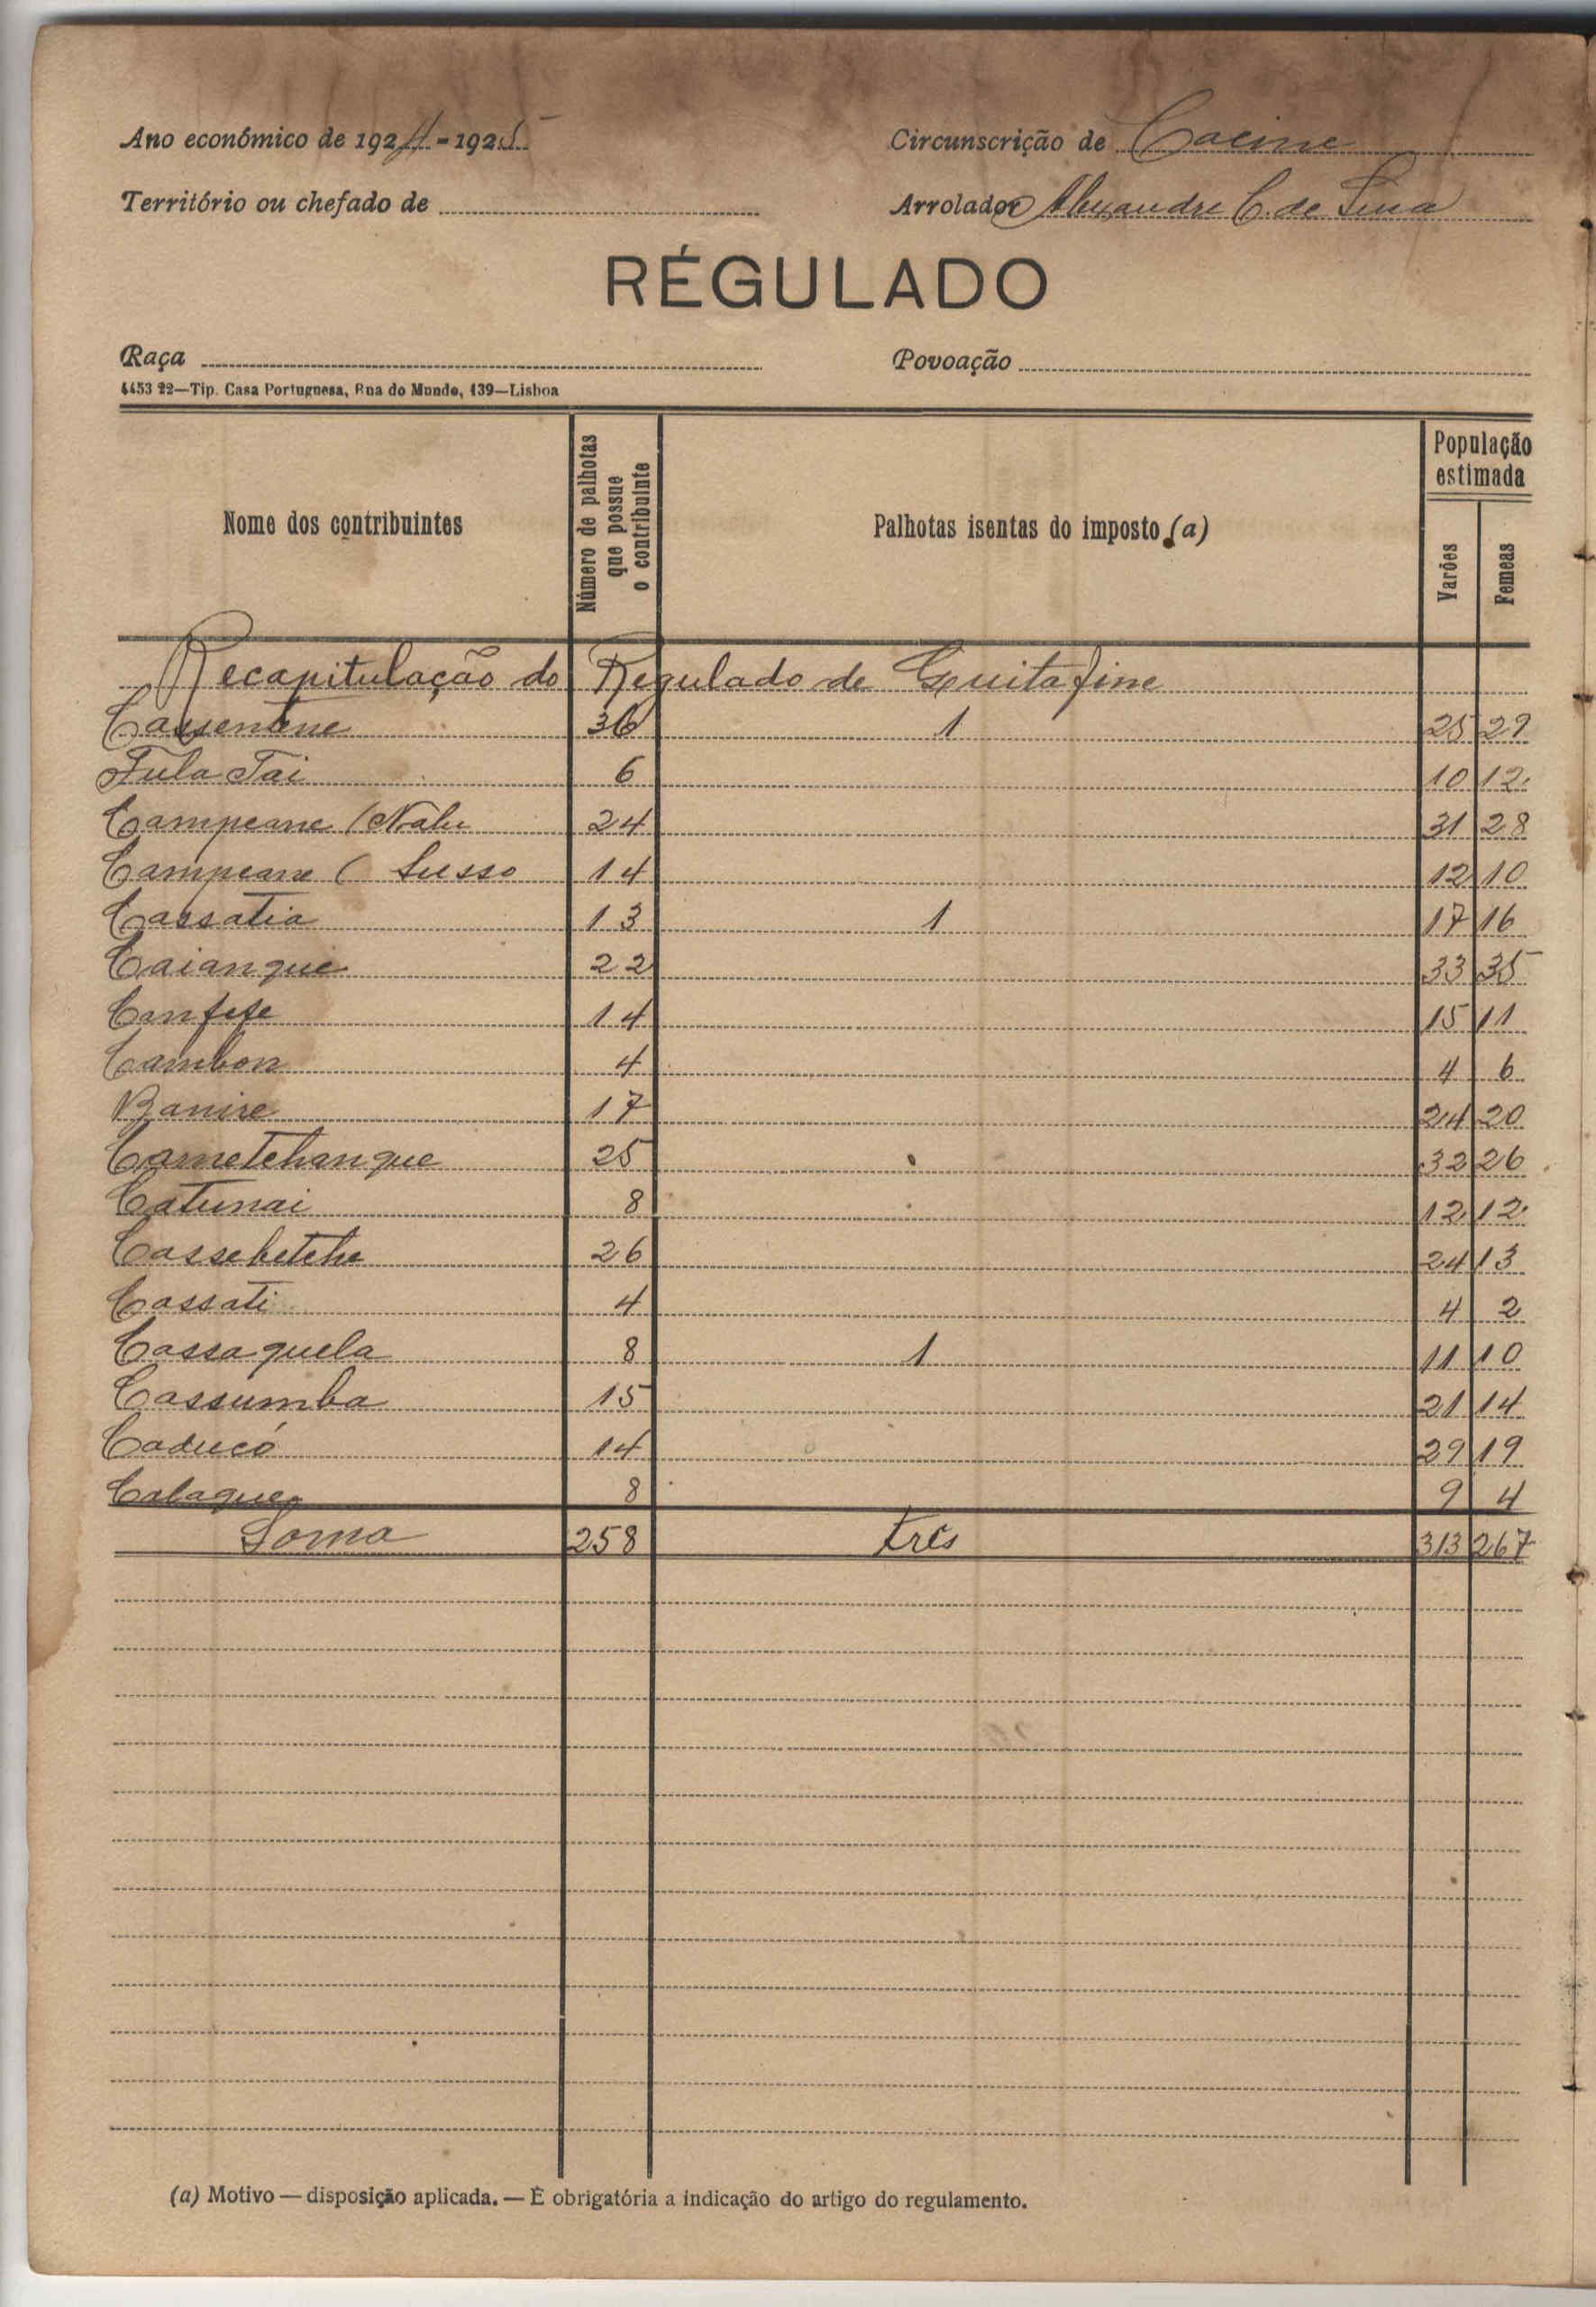 Ano económico de 1924-1925
Circunscrição de Cacine
Território ou chefado de
Arrolador Alexandre C. de Lima
RÉGULADO
Raça
Povoação
4453 22—Tip. Casa Portuguesa, Rua do Mundo, 139—Lisboa
Nome dos contribuintes
Número de palhotas que possue o contribuinte
Palhotas isentas do imposto (a)
População estimada
Varões
Femeas
Recapitulação do Regulado de Guitafine
Cassentene 36 1 25 29
Fula Tai 6 10 12
Campeane (Nalu 24 31 28
Campeane ( Susso 14 12 10
Cassatia 13 1 17 16
Caianque 22 33 35
Canfefe 14 15 11
Cambon 4 4 6
Banire 17 24 20
Cametchanque 25 32 26
Catunai 8 12 12
Cassebetche 26 24 13
Cassati 4 4 2
Cassaquela 8 1 11 10
Cassumba 15 21 14
Caducó 14 29 19
Calaque 8 9 4
Soma 258 três 313 267
(a) Motivo — disposição aplicada. — É obrigatória a indicação do artigo do regulamento.